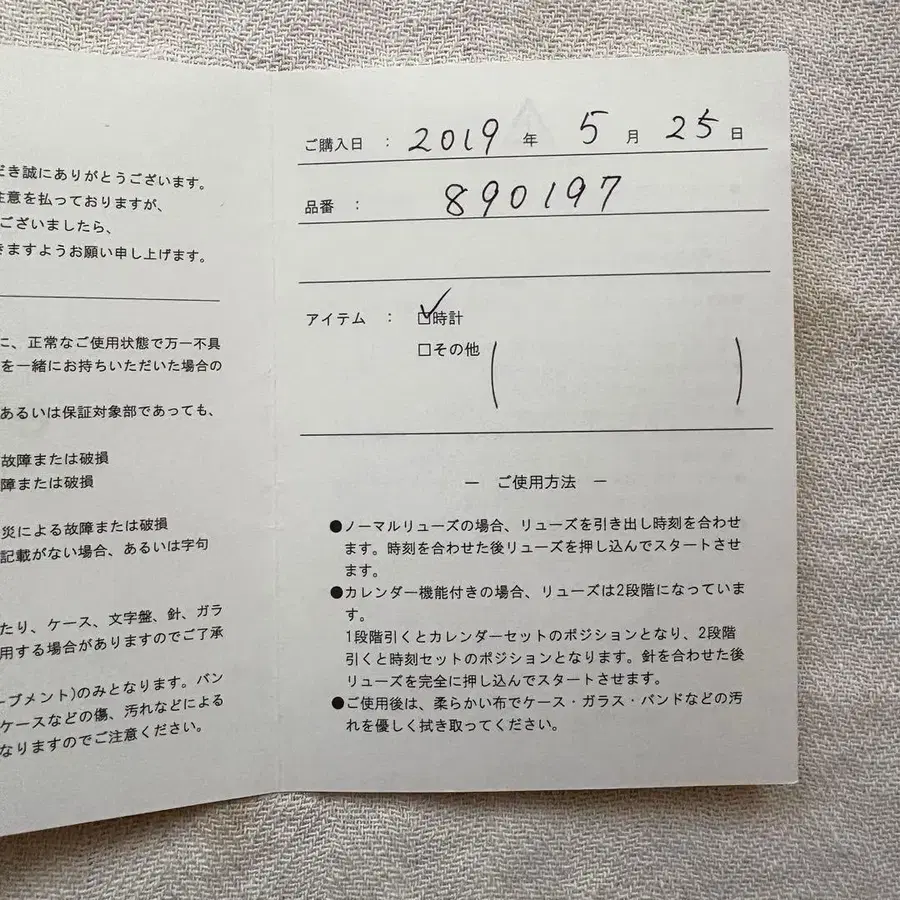 だき誠にありがとうございます。
注意を払っておりますが、
ございましたら、
きますようお願い申し上げます。
に、正常なご使用状態で万一不具
を一緒にお持ちいただいた場合の
あるいは保証対象部であっても、
故障または破損
障または破損
災による故障または破損
記載がない場合、あるいは字句
たり、ケース、文字盤、針、ガラ
用する場合がありますのでご了承
ーブメント)のみとなります。バン
ケースなどの傷、汚れなどによる
なりますのでご注意ください。
ご購入日 : 2019 年 5 月 25 日
品番 : 890197
アイテム : ☑時計
□その他 ( )
— ご使用方法 —
●ノーマルリューズの場合、リューズを引き出し時刻を合わせ
ます。時刻を合わせた後リューズを押し込んでスタートさせ
ます。
●カレンダー機能付きの場合、リューズは2段階になっていま
す。
1段階引くとカレンダーセットのポジションとなり、2段階
引くと時刻セットのポジションとなります。針を合わせた後
リューズを完全に押し込んでスタートさせます。
●ご使用後は、柔らかい布でケース・ガラス・バンドなどの汚
れを優しく拭き取ってください。